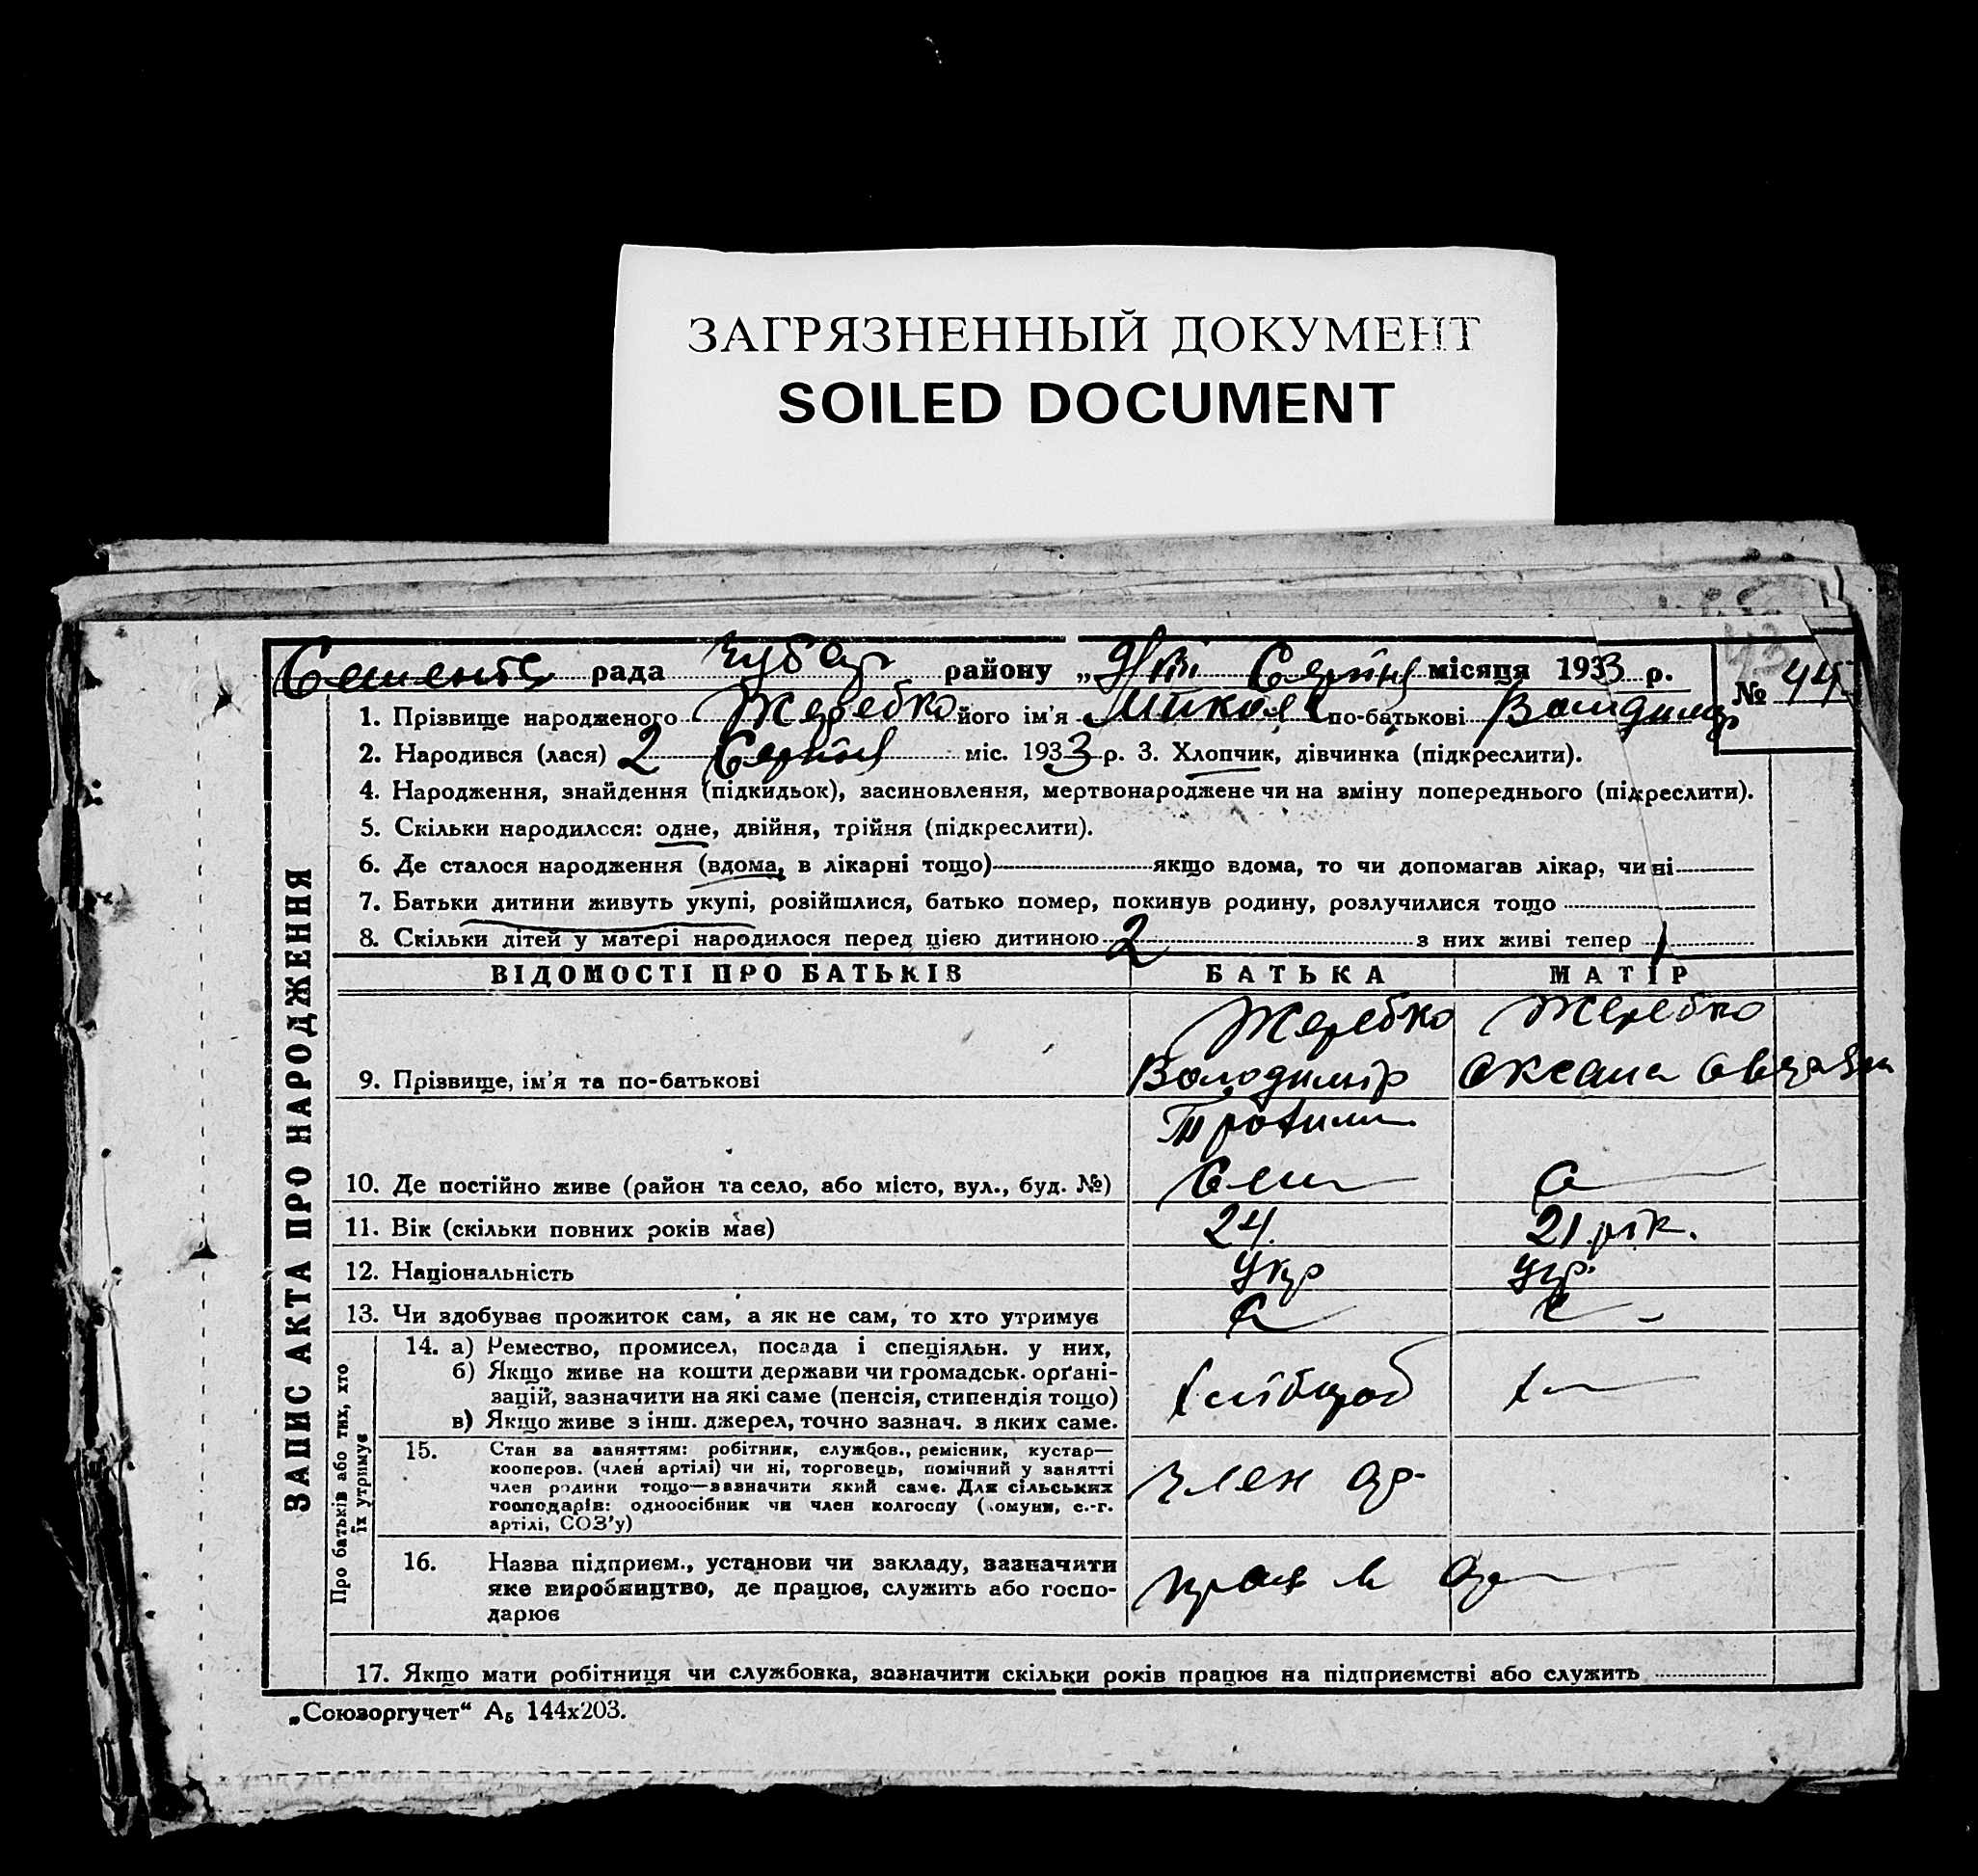 ЗАГРЯЗНЕННЫЙ ДОКУМЕНТ
SOILED DOCUMENT
рада Чубар району „ місяця 1933 р. № 44
1. Прізвище народженого Жеребко його ім'я Микола по-батькові Володимир
2. Народився (лася) 2 Серпня міс. 1933 р. 3. Хлопчик, дівчинка (підкреслити).
4. Народження, знайдення (підкидьок), засиновлення, мертвонароджене чи на зміну попереднього (підкреслити).
5. Скільки народилося: одне, двійня, трійня (підкреслити).
6. Де сталося народження (вдома, в лікарні тощо) якщо вдома, то чи допомагав лікар, чи ні
7. Батьки дитини живуть укупі, розійшлися, батько помер, покинув родину, розлучилися тощо
8. Скільки дітей у матері народилося перед цією дитиною 2 з них живі тепер 1
ЗАПИС АКТА ПРО НАРОДЖЕННЯ
ВІДОМОСТІ ПРО БАТЬКІВ БАТЬКА МАТІР
Жеребко Жеребко
9. Прізвище, ім'я та по-батькові Володимір Оксана
10. Де постійно живе (район та село, або місто, вул., буд. №)
11. Вік (скільки повних років має) 24 21 рік.
12. Національність Укр Укр.
13. Чи здобуває прожиток сам, а як не сам, то хто утримує
Про батьків або тих, хто
їх утримує
14. а) Ремество, промисел, посада і спеціяльн. у них,
б) Якщо живе на кошти держави чи громадськ. орґані-
зацій, зазначити на які саме (пенсія, стипендія тощо)
в) Якщо живе з інш. джерел, точно зазнач. з яких саме.
хлібороб
15. Стан за заняттям: робітник, службов., ремісник, кустар—
кооперов. (член артілі) чи ні, торговець, помічний у занятті
член родини тощо—зазначити який саме. Для сільських
господарів: одноосібник чи член колгоспу (комуни, с.-г.
артілі, СОЗ'у)
член ар.
16. Назва підприєм., установи чи закладу, зазначити
яке виробництво, де працює, служить або госпо-
дарює
17. Якщо мати робітниця чи службовка, зазначити скільки років працює на підприємстві або служить
„Союзоргучет“ А₅ 144х203.